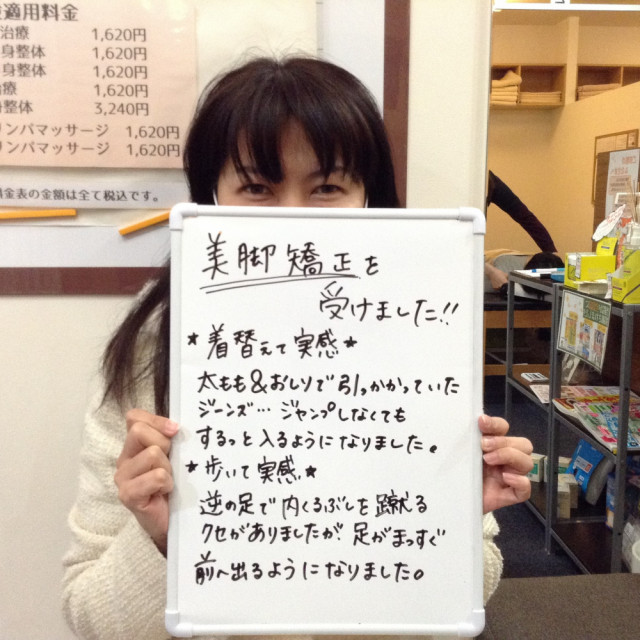 適用料金
治療 1,620円
身整体 1,620円
身整体 1,620円
療 1,620円
整体 3,240円
リンパマッサージ 1,620円
リンパマッサージ 1,620円
金表の金額は全て税込です。
美脚矯正を
受けました!!
★着替えて実感★
太もも&おしりで引っかかっていた
ジーンズ… ジャンプしなくても
するっと入るようになりました。
★歩いて実感★
逆の足で内くるぶしを蹴る
クセがありましたが、足がまっすぐ
前へ出るようになりました。